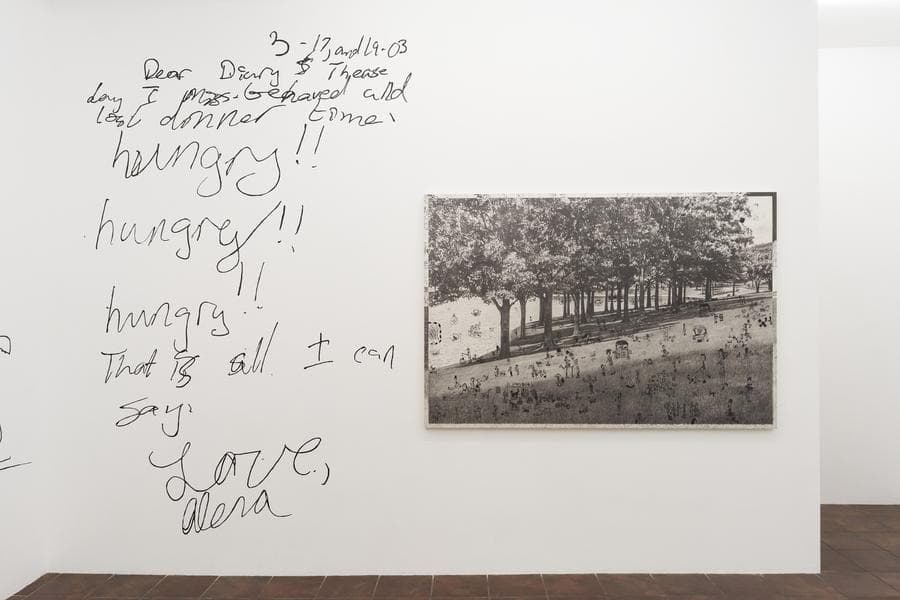 3-17, and 19-03
Dear Diary $ Thease
day I miss-behaved and
lost dinner time.
hungry!!
hungry!!
hungry!!
That is all I can
say.
Love,
alera